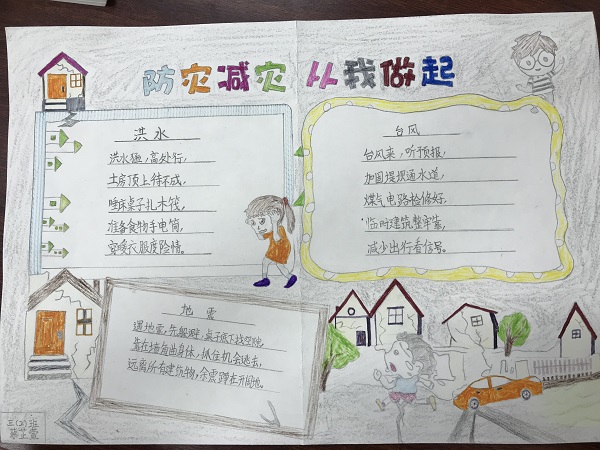 防灾减灾 从我做起
洪水
洪水猛,高处行,
土房顶上待不成,
睡床桌子扎木筏,
准备食物手电筒,
穿暖衣服度险情。
台风
台风来,听预报,
加固堤坝通水道,
煤气电路检修好,
临时建筑整牢靠,
减少出行看信号。
地震
遇地震,先躲避,桌子底下找空隙,
靠在墙角曲身体,抓住机会逃去,
远离所有建筑物,余震蹲在开阔地。
三(2)班